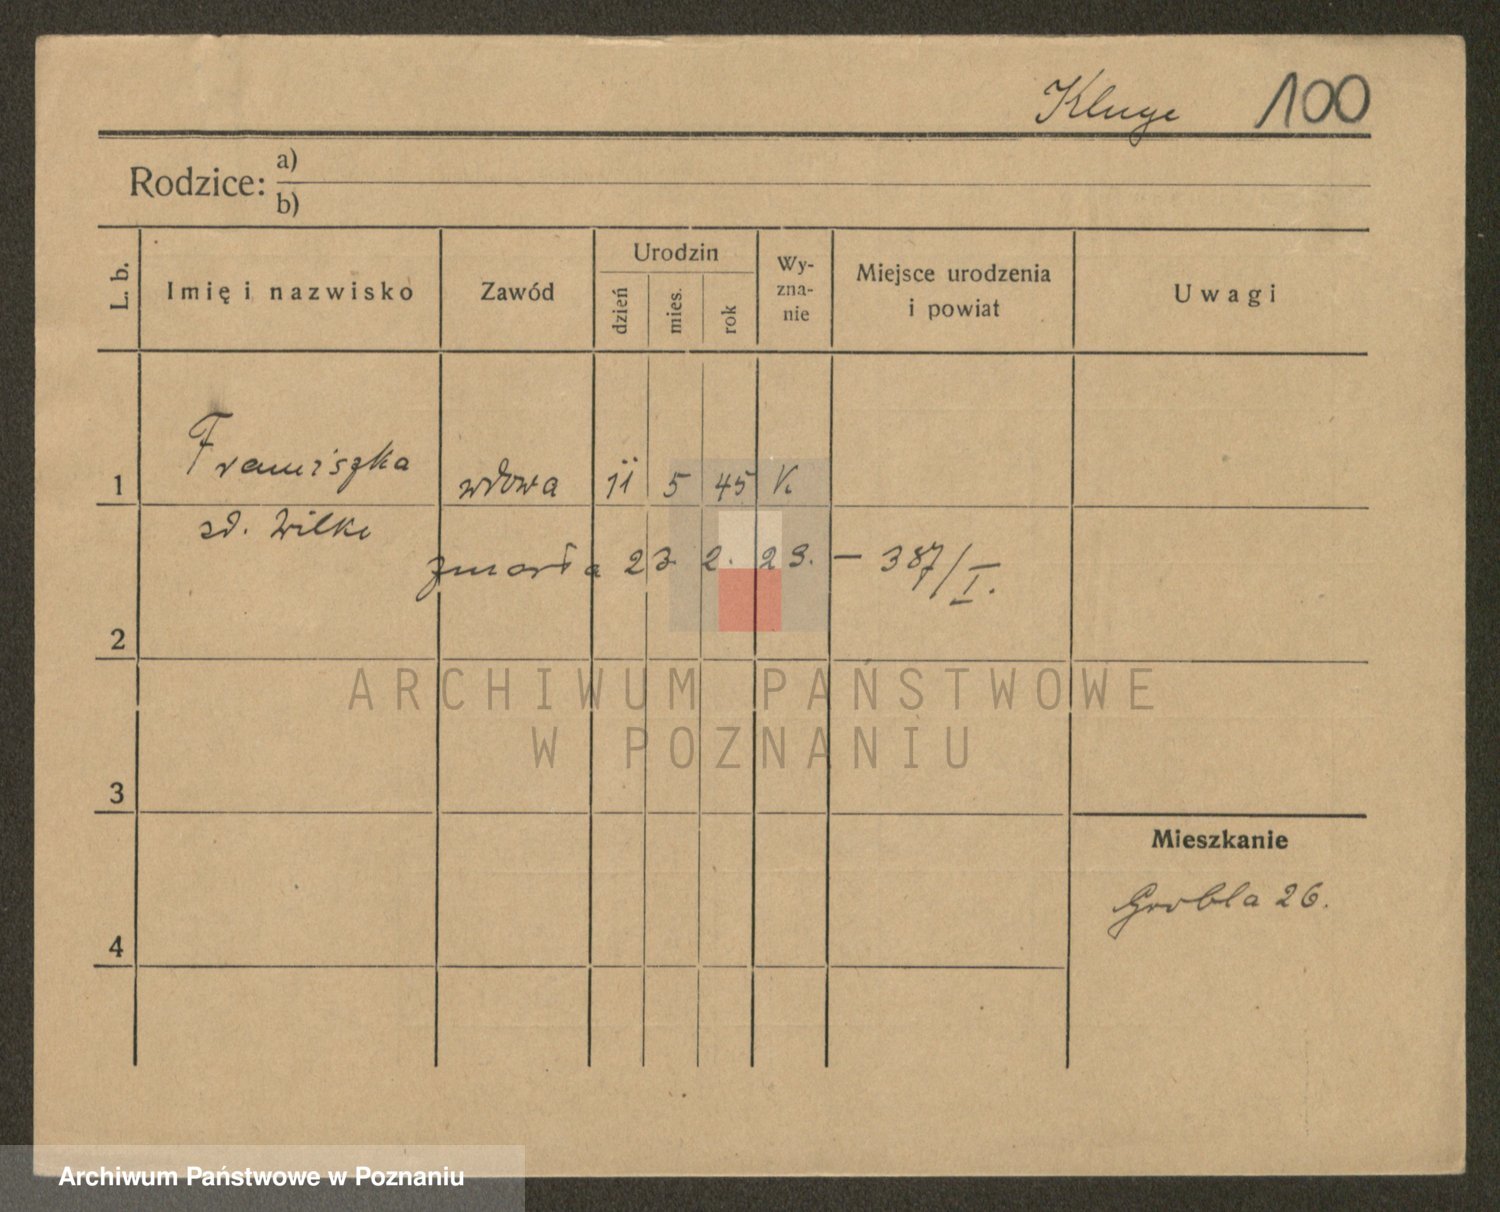 Kluge 100
Rodzice: a)
b)
L. b.
Imię i nazwisko
Zawód
Urodzin
dzień
mies.
rok
Wy-
zna-
nie
Miejsce urodzenia
i powiat
Uwagi
1 Franciszka wdowa 11 5 45 K.
zd. Wilke
zmarła 23 2. 29. — 387/I.
2
ARCHIWUM PAŃSTWOWE
W POZNANIU
3
Mieszkanie
Grobla 26.
4
Archiwum Państwowe w Poznaniu